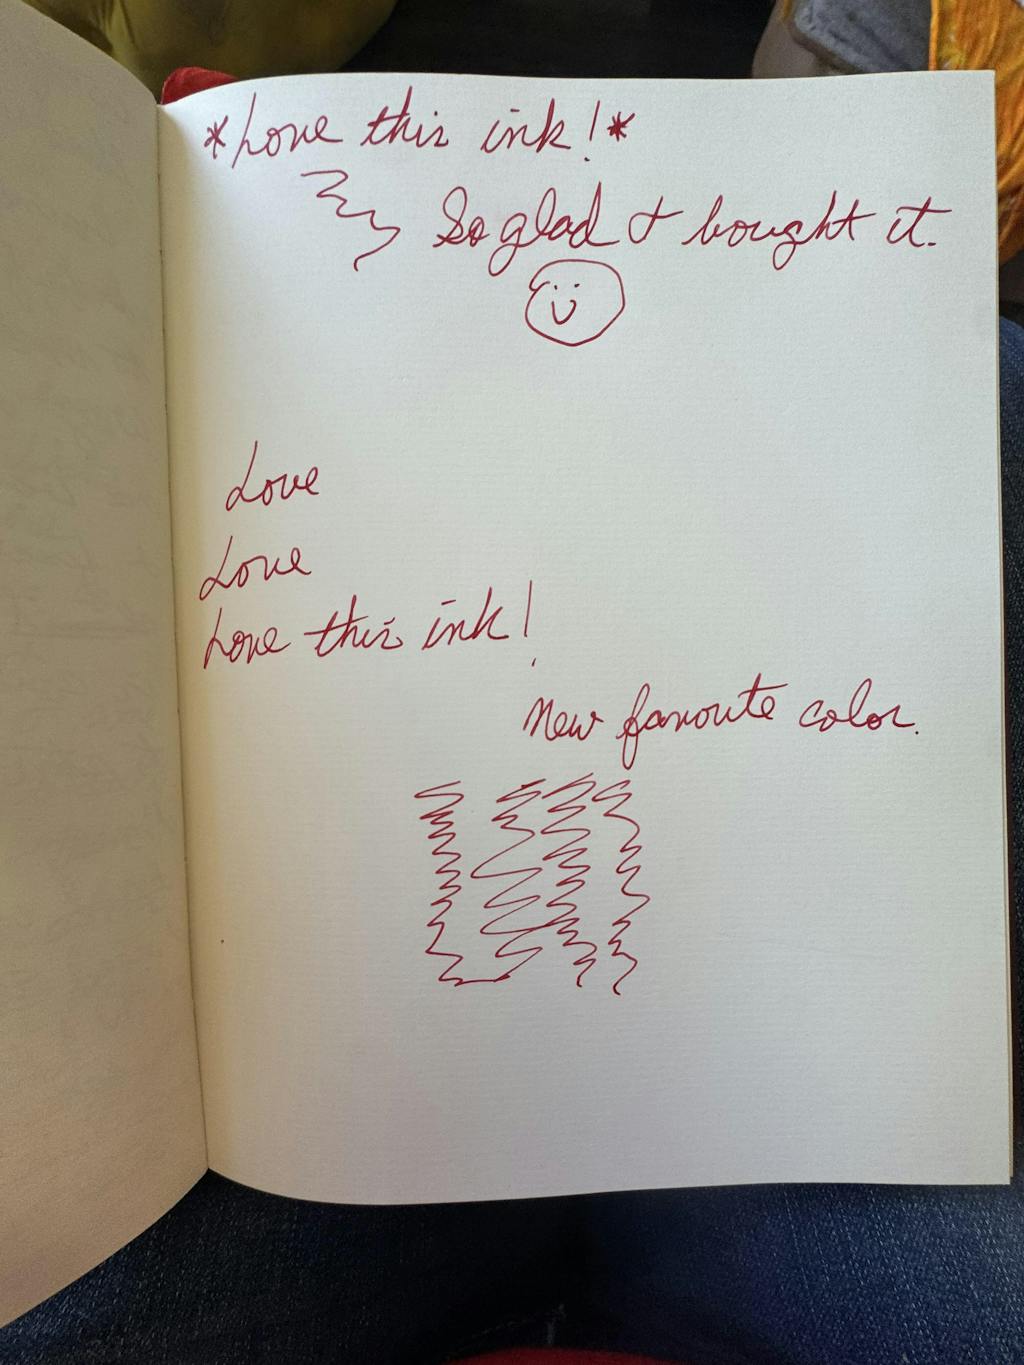 *Love this ink!*
So glad I bought it.
Love
Love
Love this ink!
New favorite color.